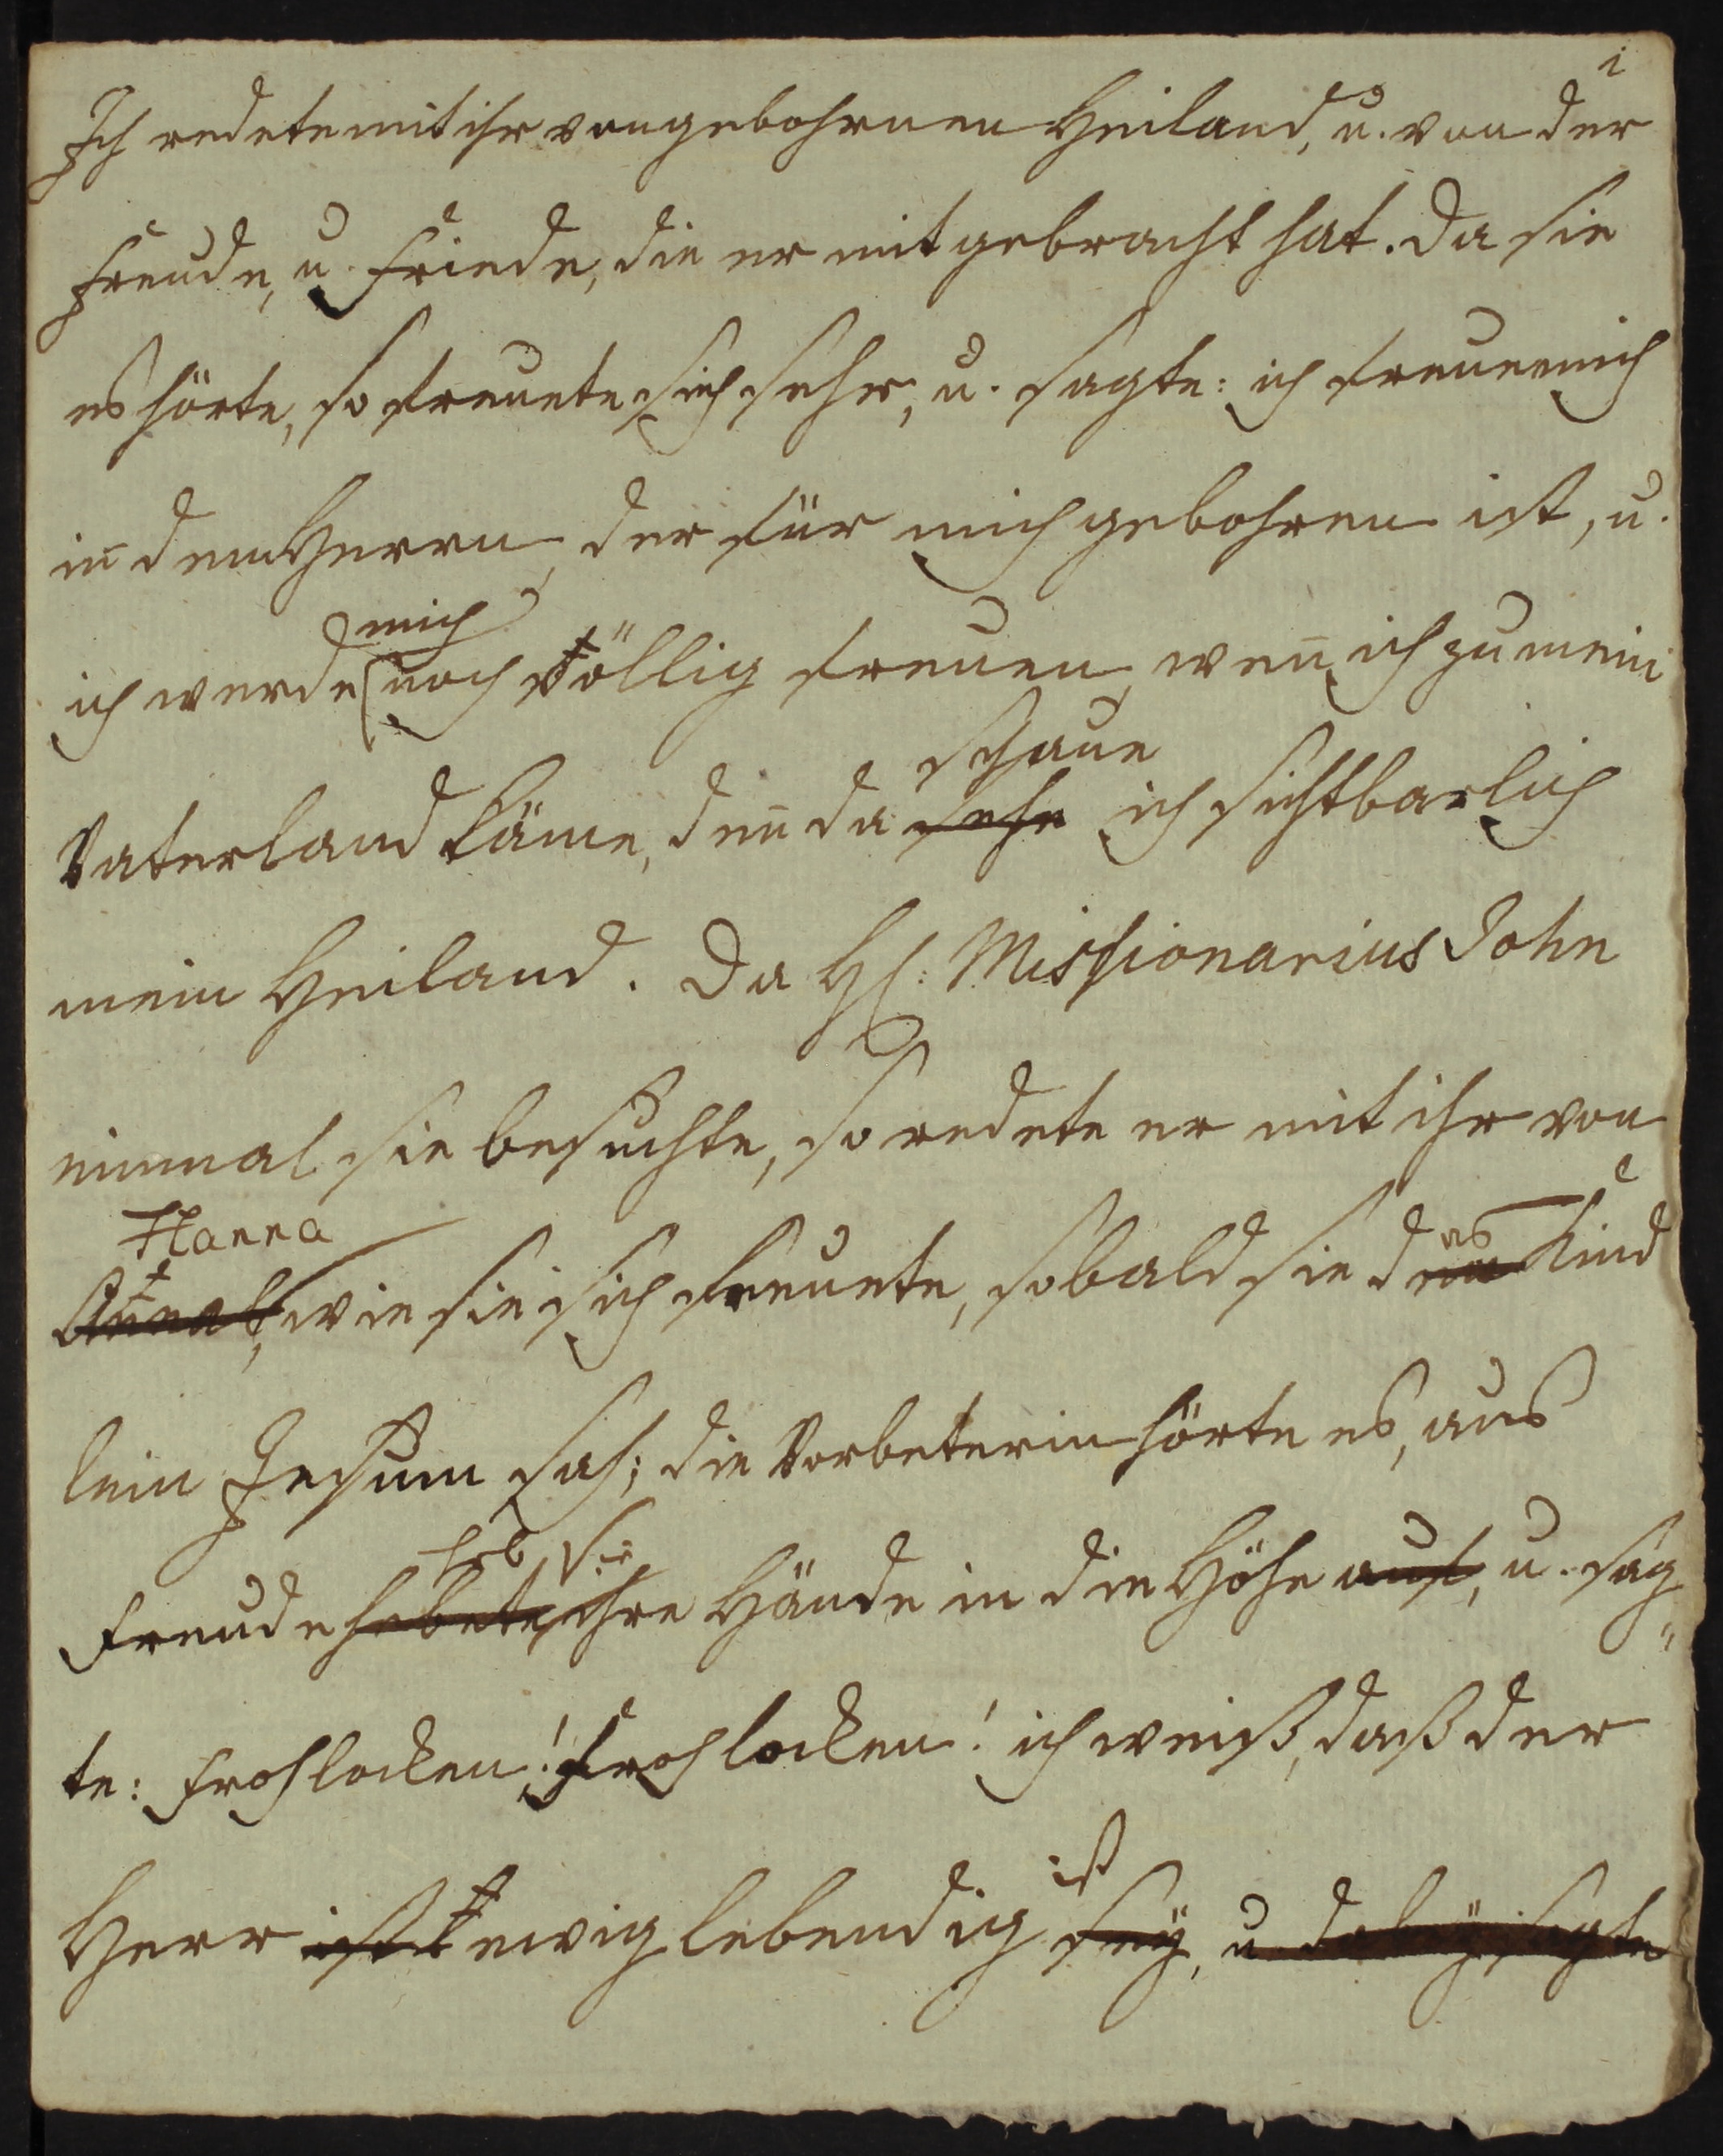 i
Ich redete mit ihr von gebohrnen Heiland, u. von der
Freude, u. Friede, die er mit gebracht hat. Da sie
es hörte, so freuete sich sehr, u. sagte: ich freue mich
in dem Herrn, der für mich gebohren ist, u.
mich
ich werde noch völlig freuen, weñ ich zu mein
schaue
Vaterland käme, deñ da sehe ich sichtbarlich
mein Heiland. Da H: Missionarius John
einmal sie besuchte, so redete er mit ihr von
Hanna
Annal, wie sie sich freuete, sobald sie den Kind
as
lein Jesum sah; die Vorbeterin hörte es, aus
hob sie
Freude hebete, ihre Hände in die Höhe auf, u. sag
te: Frohlocken! Frohlocken! ich weiß, daß der
ist
Herr ist ewig lebendig sey, u. dabey sagte